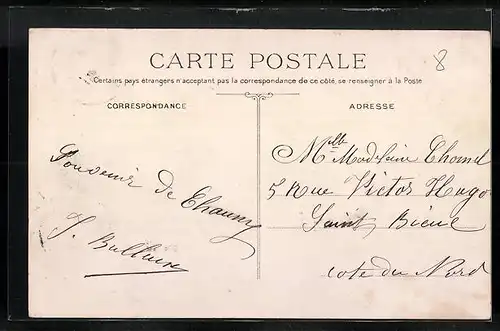 CARTE POSTALE
8
Certains pays étrangers n'acceptant pas la correspondance de ce côté, se renseigner à la Poste
CORRESPONDANCE
Souvenir de Chauny
ADRESSE
Mlle Madelaine
5 Rue Victor Hugo
Saint Bieuc
Cote du Nord